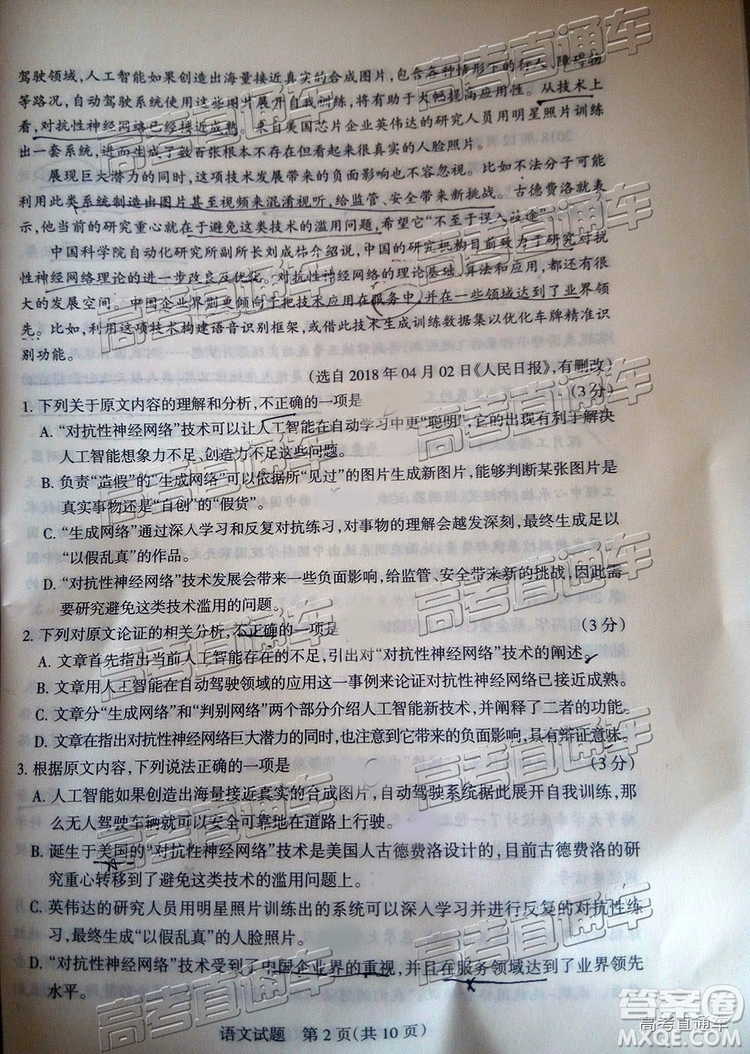 驾驶领域,人工智能如果创造出海量接近真实的合成图片,包含各种情形下的行人、障碍物
等路况,自动驾驶系统使用这些图片展开自我训练,将有助于大幅提高应用性。从技术上
看,对抗性神经网络已经接近成熟。来自美国芯片企业英伟达的研究人员用明星照片训练
出一套系统,进而生成了数百张根本不存在但看起来很真实的人脸照片。
展现巨大潜力的同时,这项技术发展带来的负面影响也不容忽视。比如不法分子可能
利用此类系统制造出图片甚至视频来混淆视听,给监管、安全带来新的挑战。古德费洛就表
示,他当前的研究重心就在于避免这类技术的滥用问题,希望它“不至于误入歧途”。
中国科学院自动化研究所副所长刘成林介绍说,中国的研究机构目前致力于研究对抗
性神经网络理论的进一步改良及优化。对抗性神经网络的理论基础、算法和应用,都还有很
大的发展空间。中国企业界则更倾向于把技术应用在服务中,并在一些领域达到了业界领
先。比如,利用这项技术构建语音识别框架,或借此技术生成训练数据集以优化车牌精准识
别功能。
(选自 2018 年 04 月 02 日《人民日报》,有删改)
1. 下列关于原文内容的理解和分析,不正确的一项是 (3 分)
A. “对抗性神经网络”技术可以让人工智能在自动学习中更“聪明”,它的出现有利于解决
人工智能想象力不足、创造力不足这些问题。
B. 负责“造假”的“生成网络”可以依据所“见过”的图片生成新图片,能够判断某张图片是
真实事物还是“自创”的“假货”。
C. “生成网络”通过深入学习和反复对抗练习,对事物的理解会越发深刻,最终生成足以
“以假乱真”的作品。
D. “对抗性神经网络”技术发展会带来一些负面影响,给监管、安全带来新的挑战,因此需
要研究避免这类技术滥用的问题。
2. 下列对原文论证的相关分析,不正确的一项是 (3 分)
A. 文章首先指出当前人工智能存在的不足,引出对“对抗性神经网络”技术的阐述。
B. 文章用人工智能在自动驾驶领域的应用这一事例来论证对抗性神经网络已接近成熟。
C. 文章分“生成网络”和“判别网络”两个部分介绍人工智能新技术,并阐释了二者的功能。
D. 文章在指出对抗性神经网络巨大潜力的同时,也指出它带来的负面影响,具有辩证意味。
3. 根据原文内容,下列说法正确的一项是 (3 分)
A. 人工智能如果创造出海量接近真实的合成图片,自动驾驶系统据此展开自我训练,那
么无人驾驶车辆就可以安全可靠地在道路上行驶。
B. 诞生于美国的“对抗性神经网络”技术是美国人古德费洛设计的,目前古德费洛的研
究重心转移到了避免这类技术的滥用问题上。
C. 英伟达的研究人员用明星照片训练出的系统可以深入学习并进行反复的对抗性练
习,最终生成“以假乱真”的人脸照片。
D. “对抗性神经网络”技术受到了中国企业界的重视,并且在服务领域达到了业界领先
水平。
语文试题 第 2 页(共 10 页)
高考直通车
答案圈
MXQE.COM